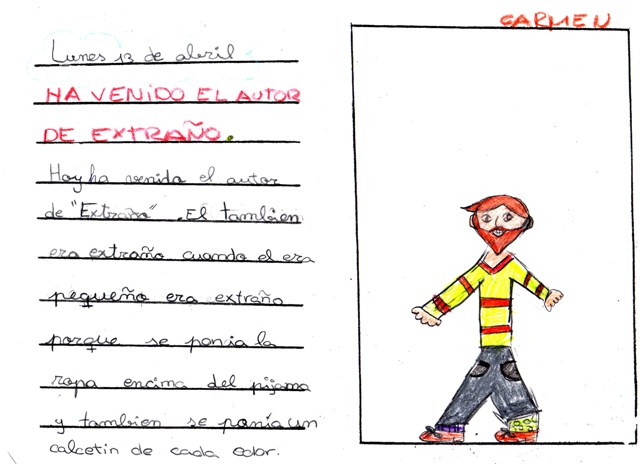 CARMEN
Lunes 13 de abril
HA VENIDO EL AUTOR
DE EXTRAÑO.
Hoy ha venido el autor
de "Extraño". El tambien
era extraño cuando el era
pequeño era extraño
porque se ponia la
ropa encima del pijama
y tambien se ponia un
calcetin de cada color.